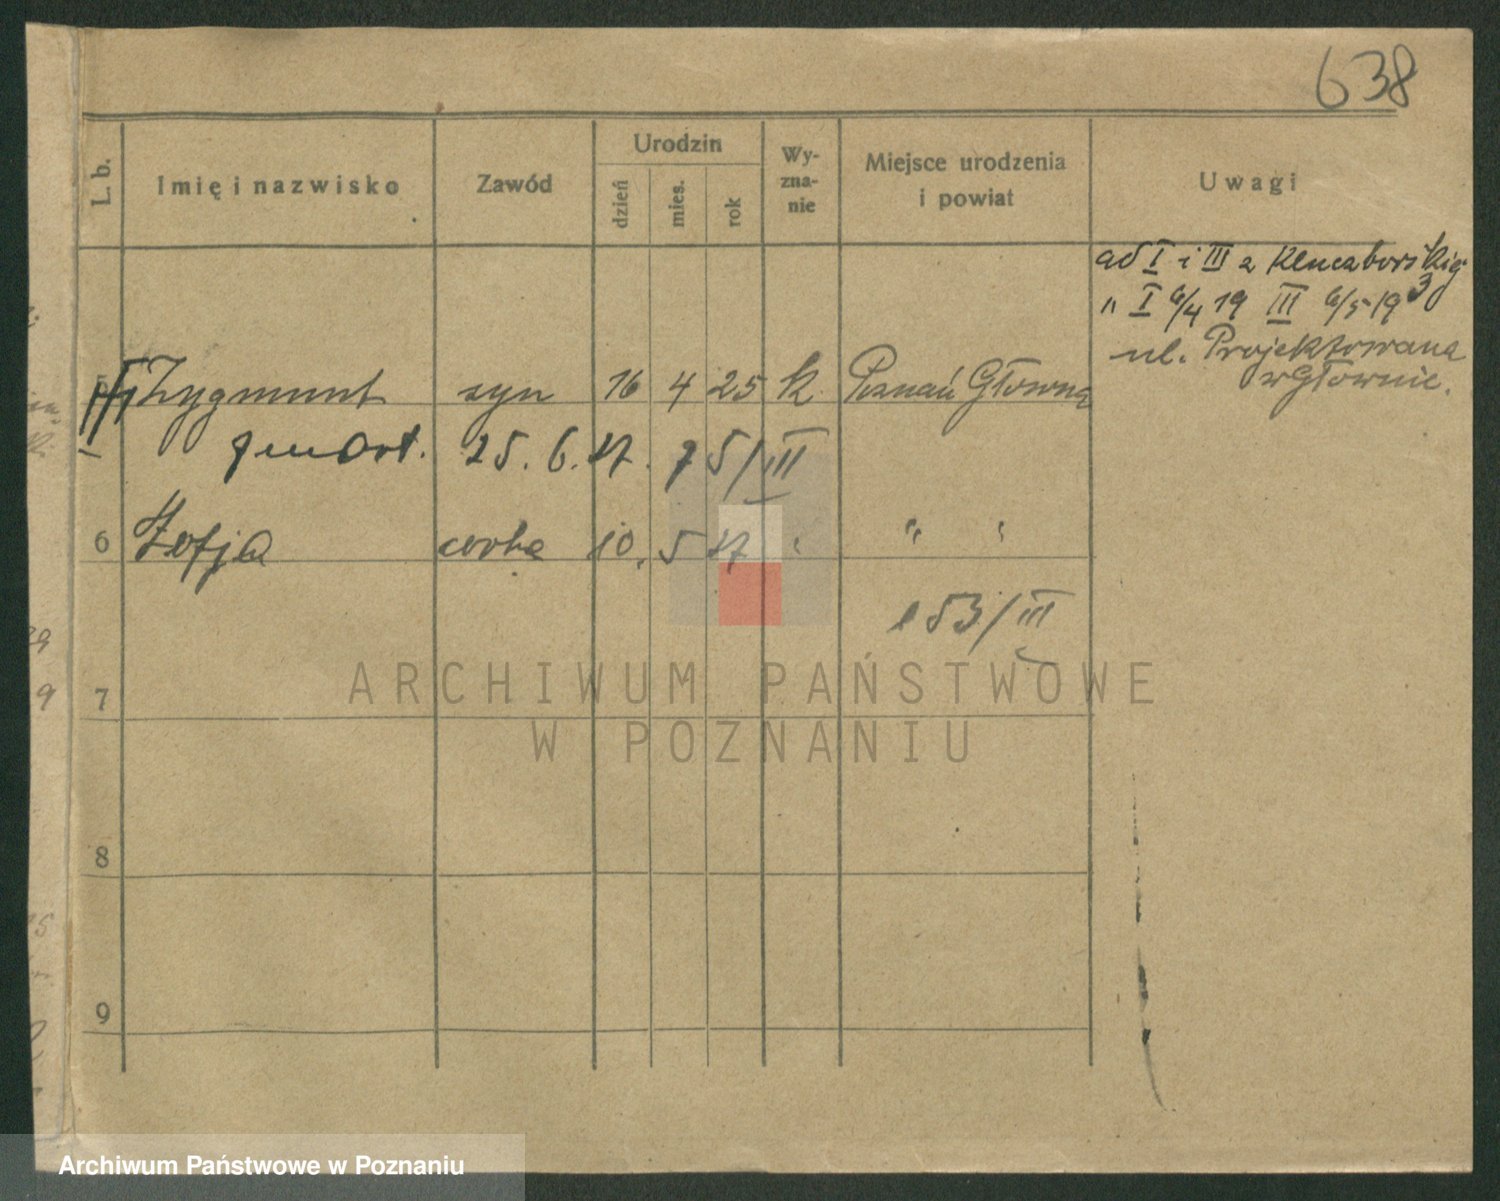 638
L. b.
Imię i nazwisko
Zawód
Urodzin
dzień
mies.
rok
Wy-
zna-
nie
Miejsce urodzenia
i powiat
Uwagi
ad I i III z Kluczborskiej
" I 6/4 19 III 6/5 19 3
ul. Projektowana
w Głownie.
5 Zygmunt syn 16 4 25 k. Poznań Główna
zmarł. 25. 6. 27. 75/III
6 Zofja córka 10. 5 27 " " "
153/III
7
8
9
ARCHIWUM PAŃSTWOWE
W POZNANIU
Archiwum Państwowe w Poznaniu